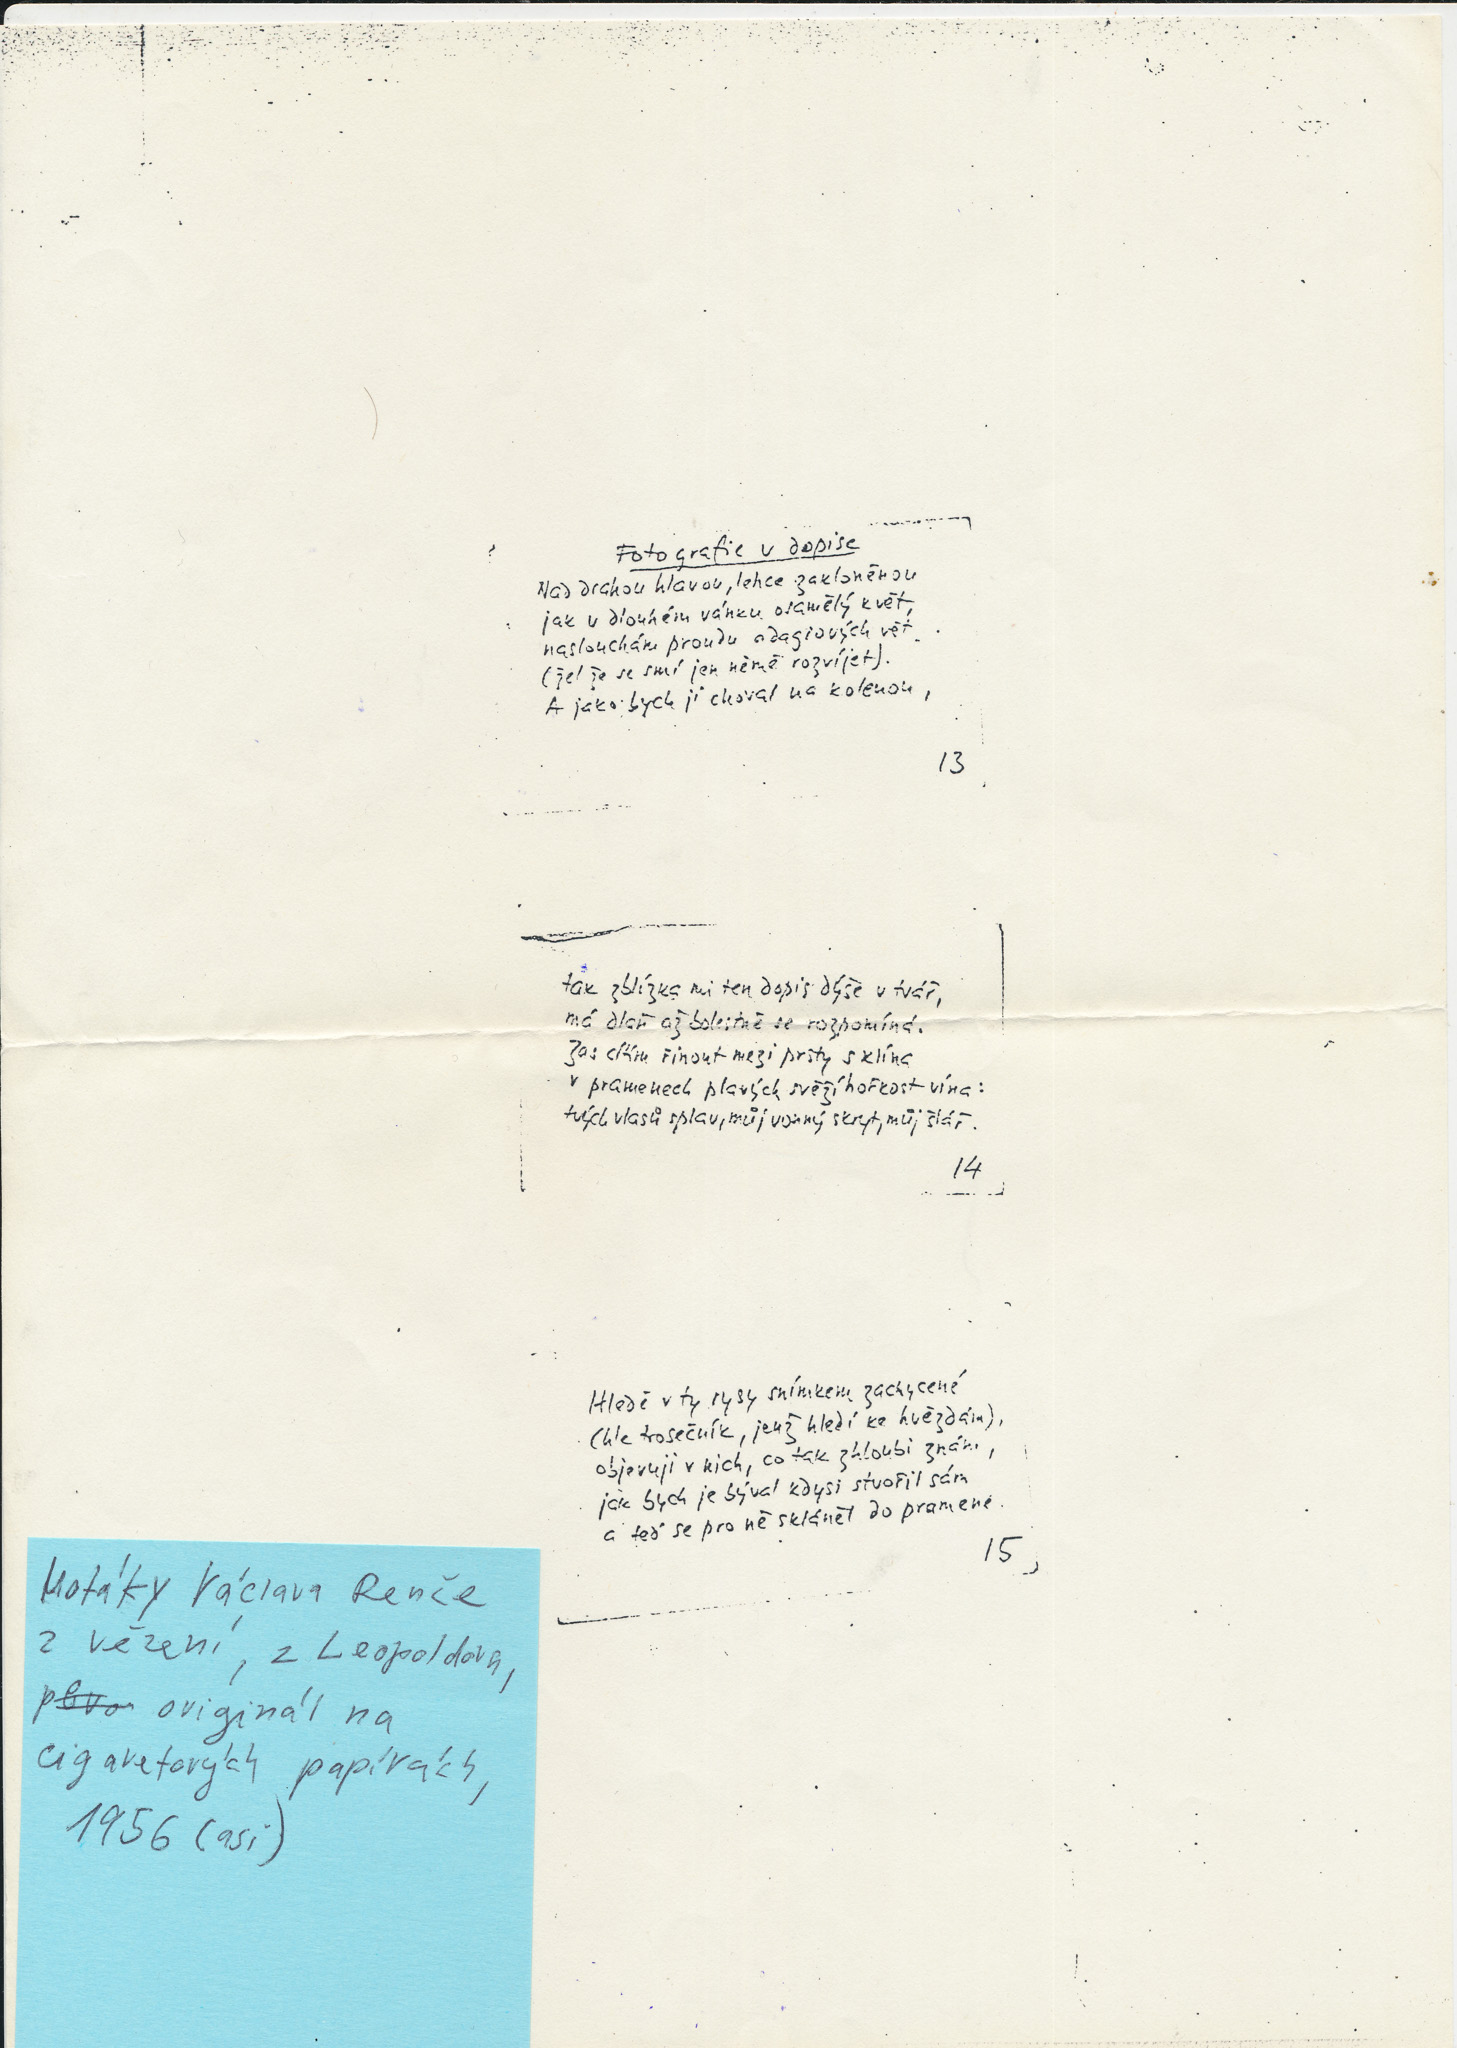 Fotografie v dopise
Nad drahou hlavou, lehce zakloněnou
jak v dlouhém vánku osamělý květ,
naslouchám proudu adagiových vět
(žel že se smí jen němě rozvíjet).
A jako bych ji choval na kolenou,
13
tak zblízka mi ten dopis dýše v tvář,
má dlaň až bolestně se rozpomíná.
Zas cítím řinout mezi prsty s klína
v pramenech plavých svěží hořkost vína:
tvých vlasů splav, můj vonný skryt, můj šlář.
14
Hledě v ty rysy snímkem zachycené
(hle trosečník, jenž hledí ke hvězdám),
objevuji v nich, co tak zhloubi znám,
jak bych je býval kdysi stvořil sám
a teď se pro ně skláněl do pramene.
15
Motáky Václava Renče
z vězení, z Leopoldova,
originál na
cigaretových papírách,
1956 (asi)